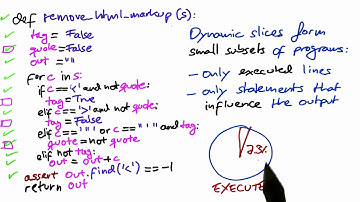 def remove_html_markup(s):
tag = False
quote = False
out = ""
for c in s:
if c == '<' and not quote:
tag = True
elif c == '>' and not quote:
tag = False
elif c == '"' or c == "'" and tag:
quote = not quote
elif not tag:
out = out + c
assert out.find('<') == -1
return out
Dynamic slices form
small subsets of programs:
- only executed lines
- only statements that
influence the output
EXECUTE